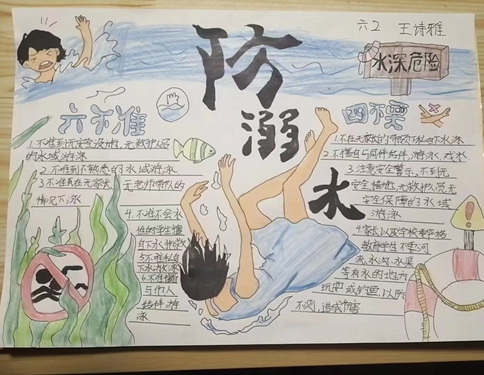 六2 王诗雅
防溺水
水深危险
六不准
1.不准到无安全设施,无救护人员
的水域游泳
2.不准到不熟悉的水域游泳
3.不准在无家长
无老师带队的
情况下泳
4.不准不会水
性的学生擅
自下水施救
5.不准私自
下水游泳
6.不准擅自
与他人
结伴游
泳
四不要
1.不在无家长的带领下私自下水泳
2.不擅自与同伴结伴,游泳,戏水
3.注意安全警示,不到无
安全措施,无救护人员无
安全保障的水域
游泳
4.家长以及学校要严格
教育学生不要河
流,水沟,水渠
等有水的地方
玩耍
不测,造成伤害